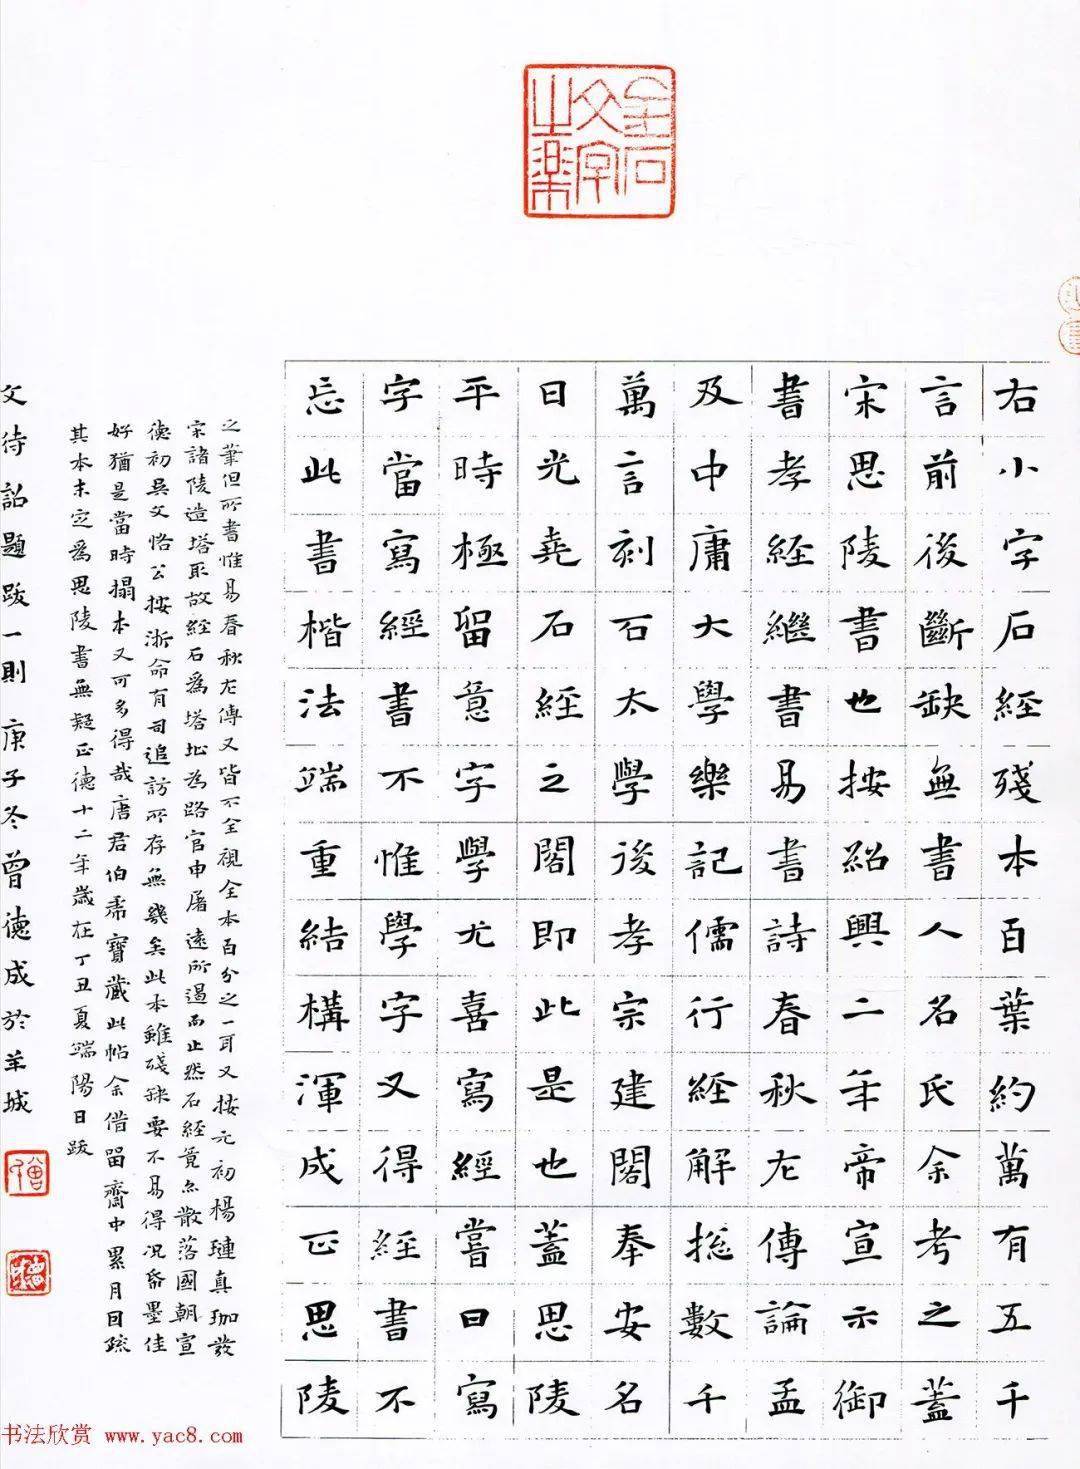 金石
文字
之樂
右小字石經殘本百葉約萬有五千
言前後斷缺無書人名氏余考之蓋
宋思陵書也按紹興二年帝宣示御
書孝經繼書易書詩春秋左傳論孟
及中庸大學樂記儒行經解揔數千
萬言刻石太學後孝宗建閣奉安名
日光堯石經之閣即此是也蓋思陵
平時極留意字學尤喜寫經嘗曰寫
字當寫經書不惟學字又得經書不
忘此書楷法端重結構渾成正思陵
之筆但所書惟易春秋左傳又皆不全視全本百分之一耳又按元初楊璉真珈發
宋諸陵造塔取故經石為塔址為路官申屠遠所遏而止然石經竟亦散落國朝宣
德初吳文恪公按浙命有司追訪所存無幾矣此本雖殘缺要不易得況紙墨佳
好猶是當時搨本又可多得哉唐君伯虎寶藏此帖余借留齋中累月因疏
其本末定為思陵書無疑正德十二年歲在丁丑夏端陽日跋
文待詔題跋一則 庚子冬曾德成於羊城
曾
书法欣赏 www.yac8.com